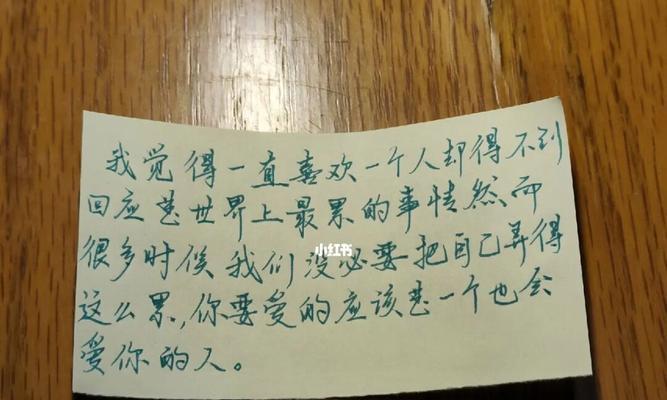 我觉得一直喜欢一个人却得不到
回应是世界上最累的事情然而
很多时候我们没必要把自己弄得
这么累,你要爱的应该是一个也会
爱你的人。
小红书